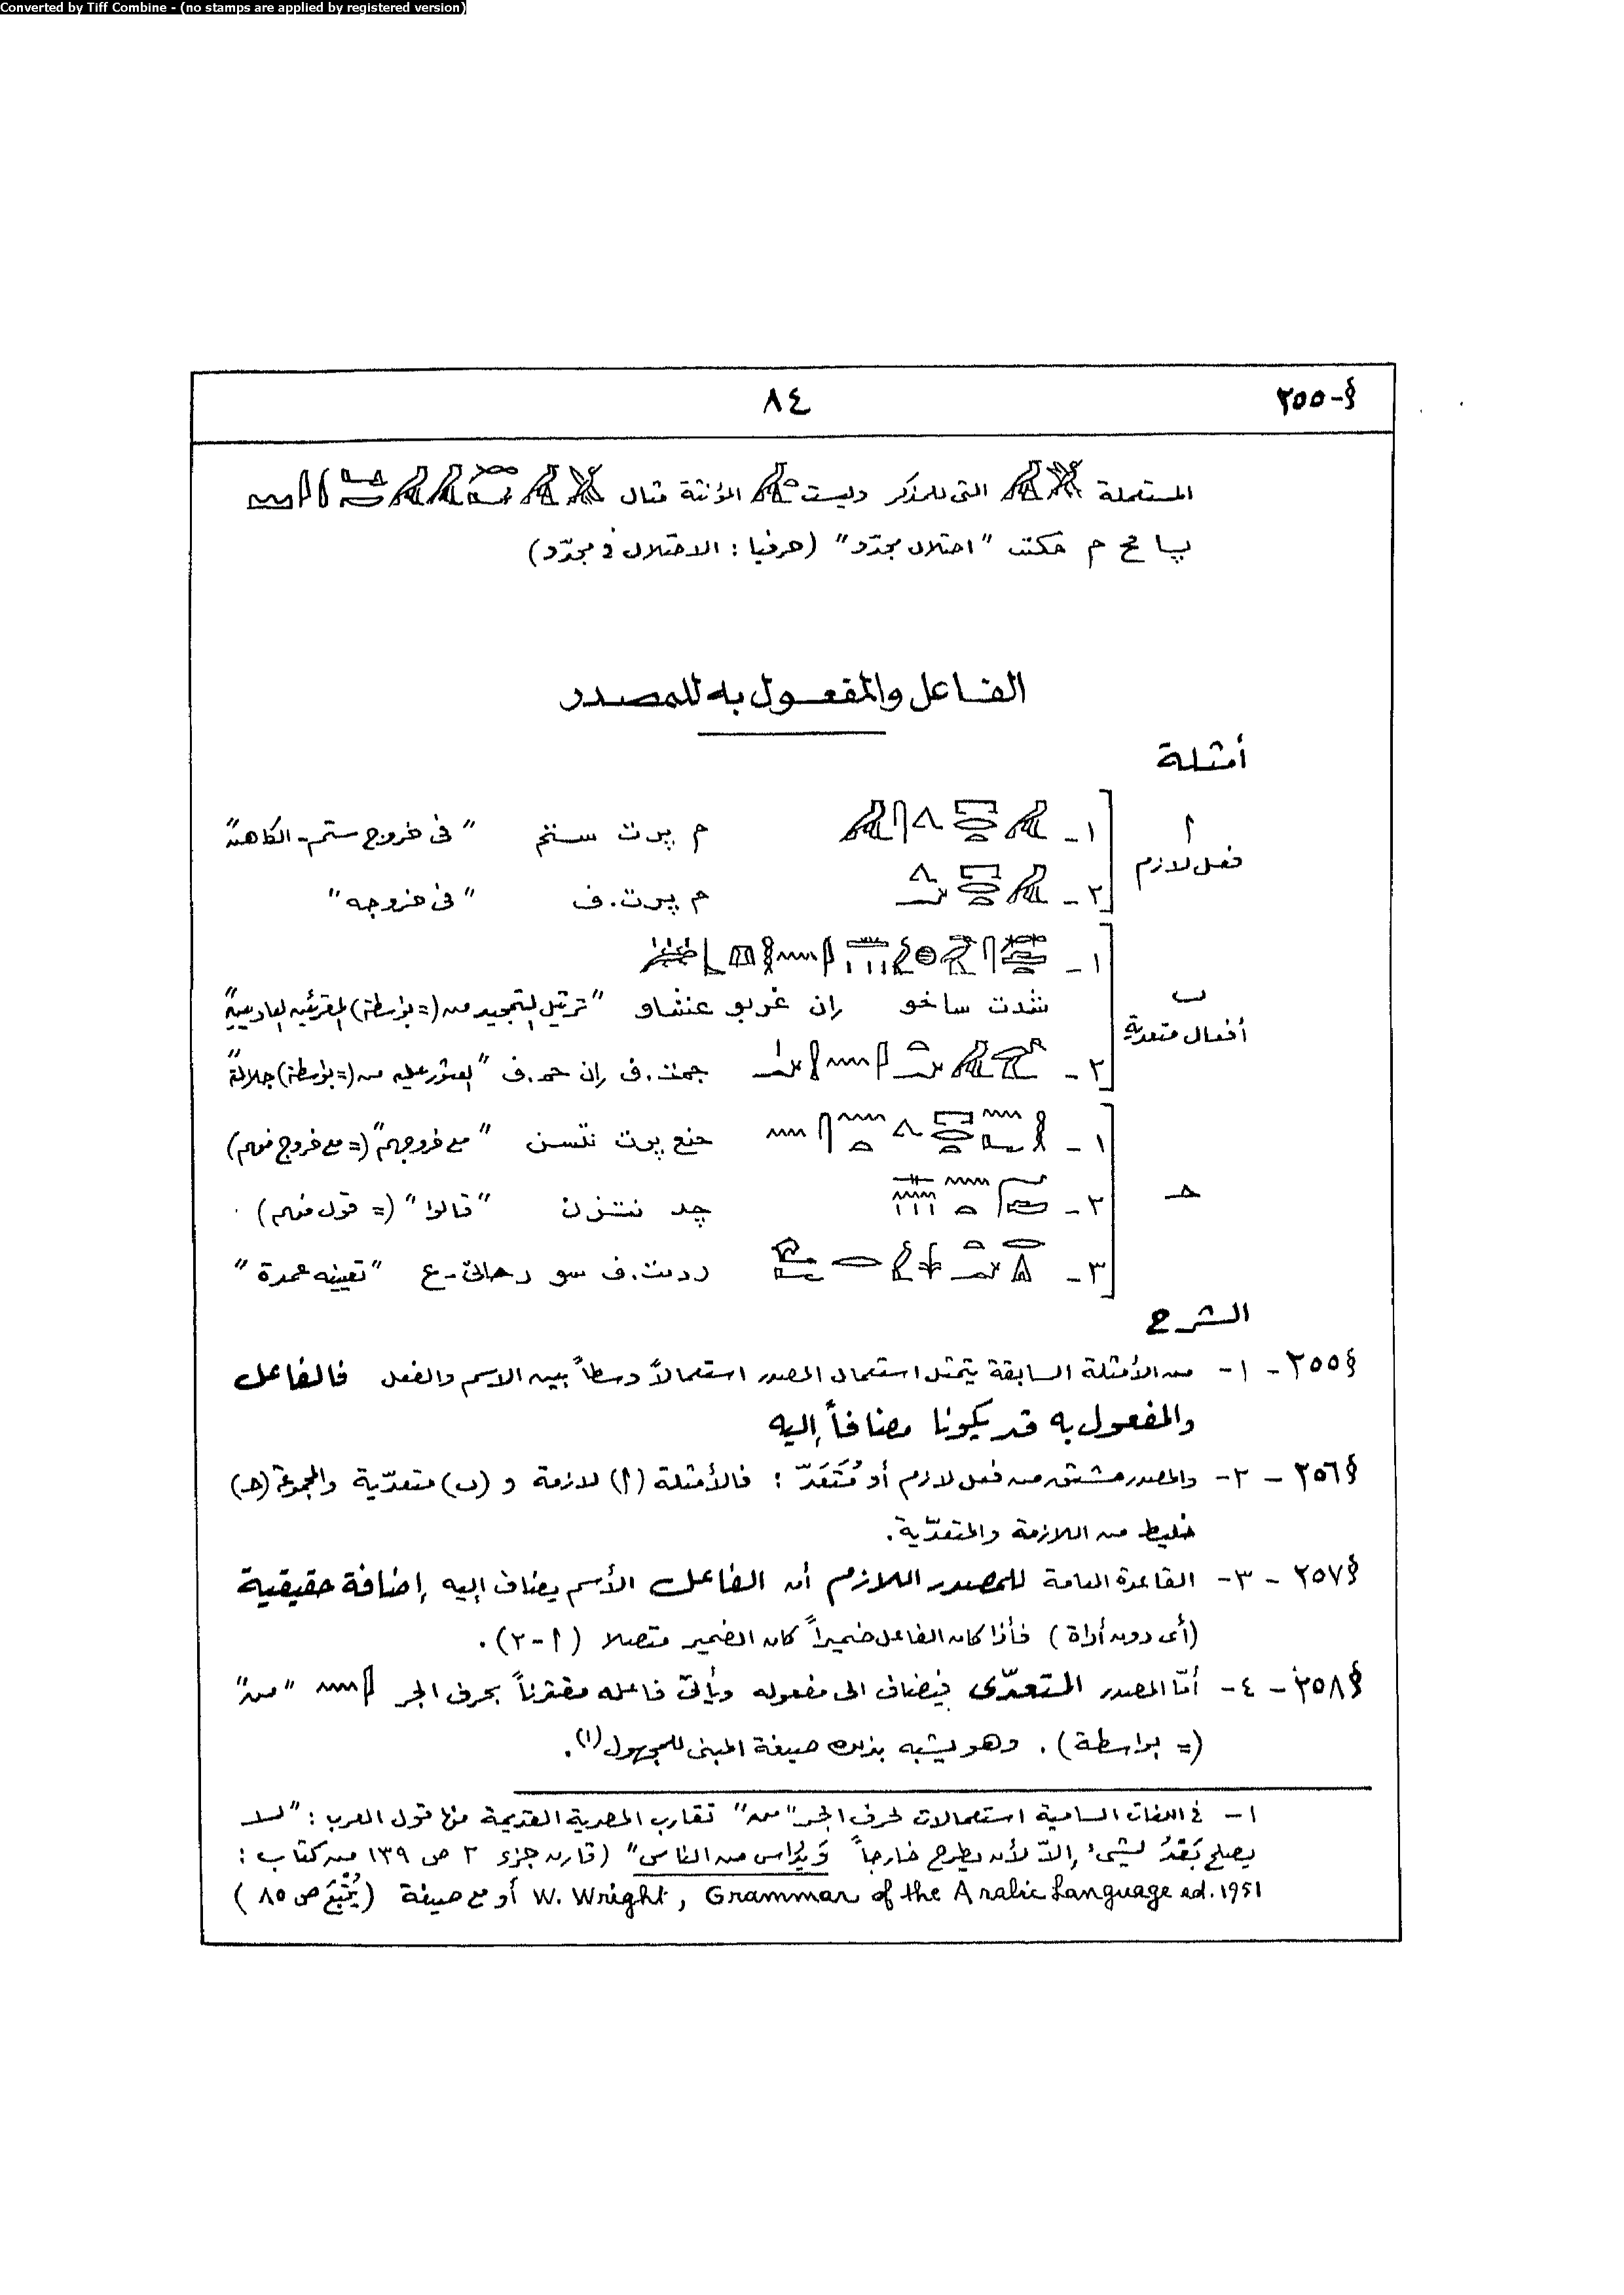 Converted by Tiff Combine - (no stamps are applied by registered version)
§-٢٥٥
٨٤
المستعملة التى للمذكر وليست المؤنثة مثال
پا م حكت "احتلال مجدّد" (حرفيا : الاحتلال فى مجدّو)
الفاعل والمفعول به للمصدر
أمثلة
أ
فعل لازم
١- م پرت ستم "فى خروج ستم - الكاهن"
٢- م پرت.ف "فى خروجه"
ب
أفعال متعدية
١-
شدت ساخو إن غريو عشاو "ترتيل التجيد من (= بواسطة) المقرئين العاديين"
٢- جمت.ف إن حم.ف "العثور عليه من (= بواسطة) جلالة"
حـ
١- حنع پرت نتسن "مع خروجهم" (= مع خروج منهم)
٢- چد نتزن "قالوا" (= قول منهم) .
٣- ردت.ف سو رحاتى-ع "تعيينه عمدة"
الشرح
§٢٥٥ - ١- من الأمثلة السابقة يتمثل استعمال المصدر استعمالاً وسطاً بين الاسم والفعل فالفاعل
والمفعول به قد يكونا مضافاً إليه
§٢٥٦ - ٢- والمصدر مشتق من فعل لازم أو مُتَعَدّ : فالأمثلة (أ) لازمة و (ب) متعدّية والمجموعة (حـ)
خليط من اللازمة والمتعدّية.
§٢٥٧ - ٣- القاعدة العامة للمصدر اللازم أن الفاعل الأسم يضاف إليه إضافة حقيقية
(أى دون أداة) فأذا كان الفاعل ضميراً كان الضمير متصلا (أ-٢).
§٢٥٨ - ٤- أمّا المصدر المتعدّى فيضاف الى مفعوله ويأتى فاعله مقترناً بحرف الجر "من"
(= بواسطة). وهو يشبه بذلك صيغة المبنى للمجهول(١).
١- فى اللغات السامية استعمالات لحرف الجر "من" تقارب المصرية القديمة منها قول العرب : "لا
يصلح بَعْدُ لشىء إلاّ لأن يطرح خارجاً وَيُداس من الناس" (قارن جزء ٢ ص ١٣٩ من كتاب :
W. Wright, Grammar of the Arabic Language ed. 1951 أو مع صيغة (يُتْبَعَ ص ٨٥)